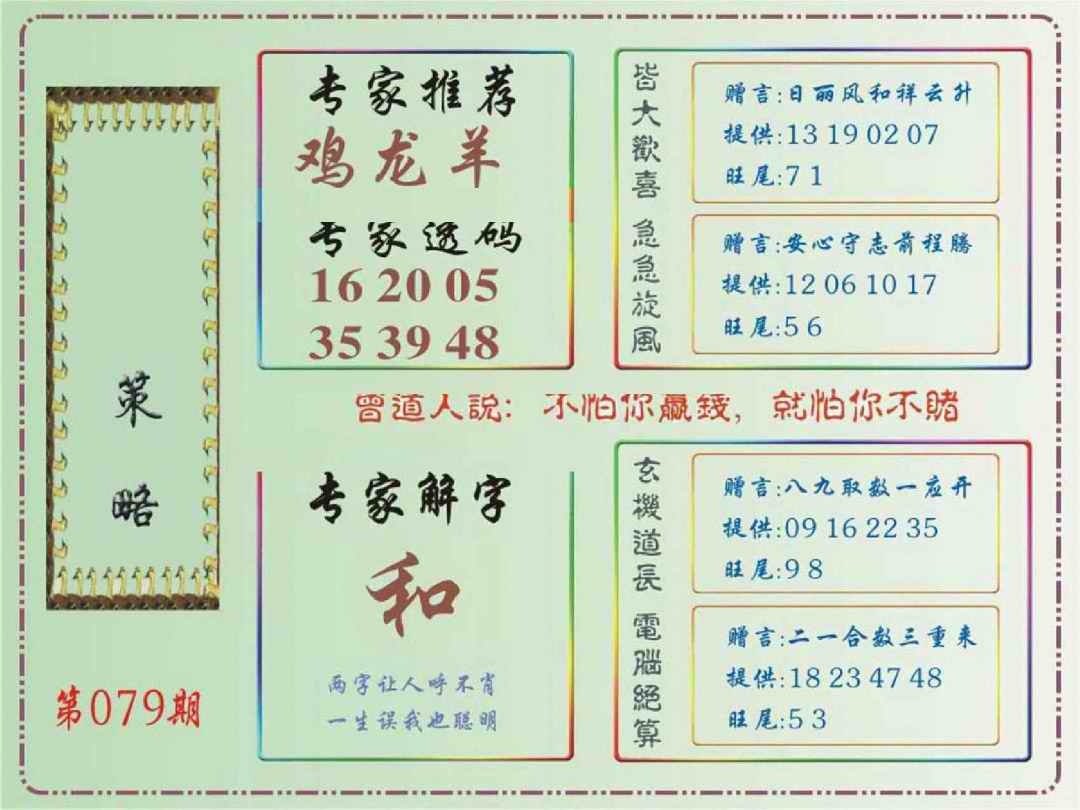 策略
第079期
专家推荐
鸡龙羊
专家透码
16 20 05
35 39 48
皆大歡喜
赠言:日丽风和祥云升
提供:13 19 02 07
旺尾:7 1
急急旋風
赠言:安心守志前程腾
提供:12 06 10 17
旺尾:5 6
曾道人說: 不怕你贏錢, 就怕你不賭
专家解字
和
两字让人呼不肖
一生误我也聪明
玄機道長
赠言:八九取数一应开
提供:09 16 22 35
旺尾:9 8
電腦絕算
赠言:二一合数三重来
提供:18 23 47 48
旺尾:5 3